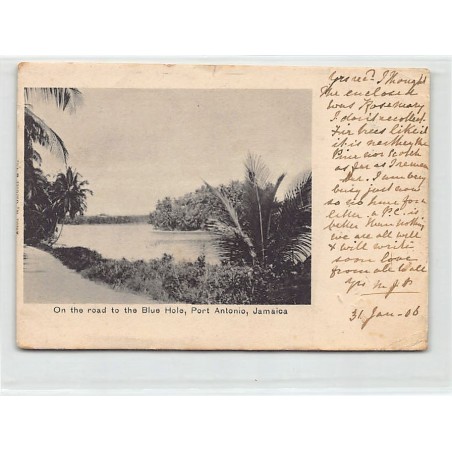 Yrs recd. I thought
the enclosed
was Rosemary
I don't recollect
Fir trees like it
it is neither the
Pine nor Scotch
as far as I remem
ber. I am very
busy just now
so no time for a
letter, a P.C. is
better than nothing
we are all well
& will write
soon love
from all to all
yrs M.J.P
31 Jan-06
On the road to the Blue Hole, Port Antonio, Jamaica